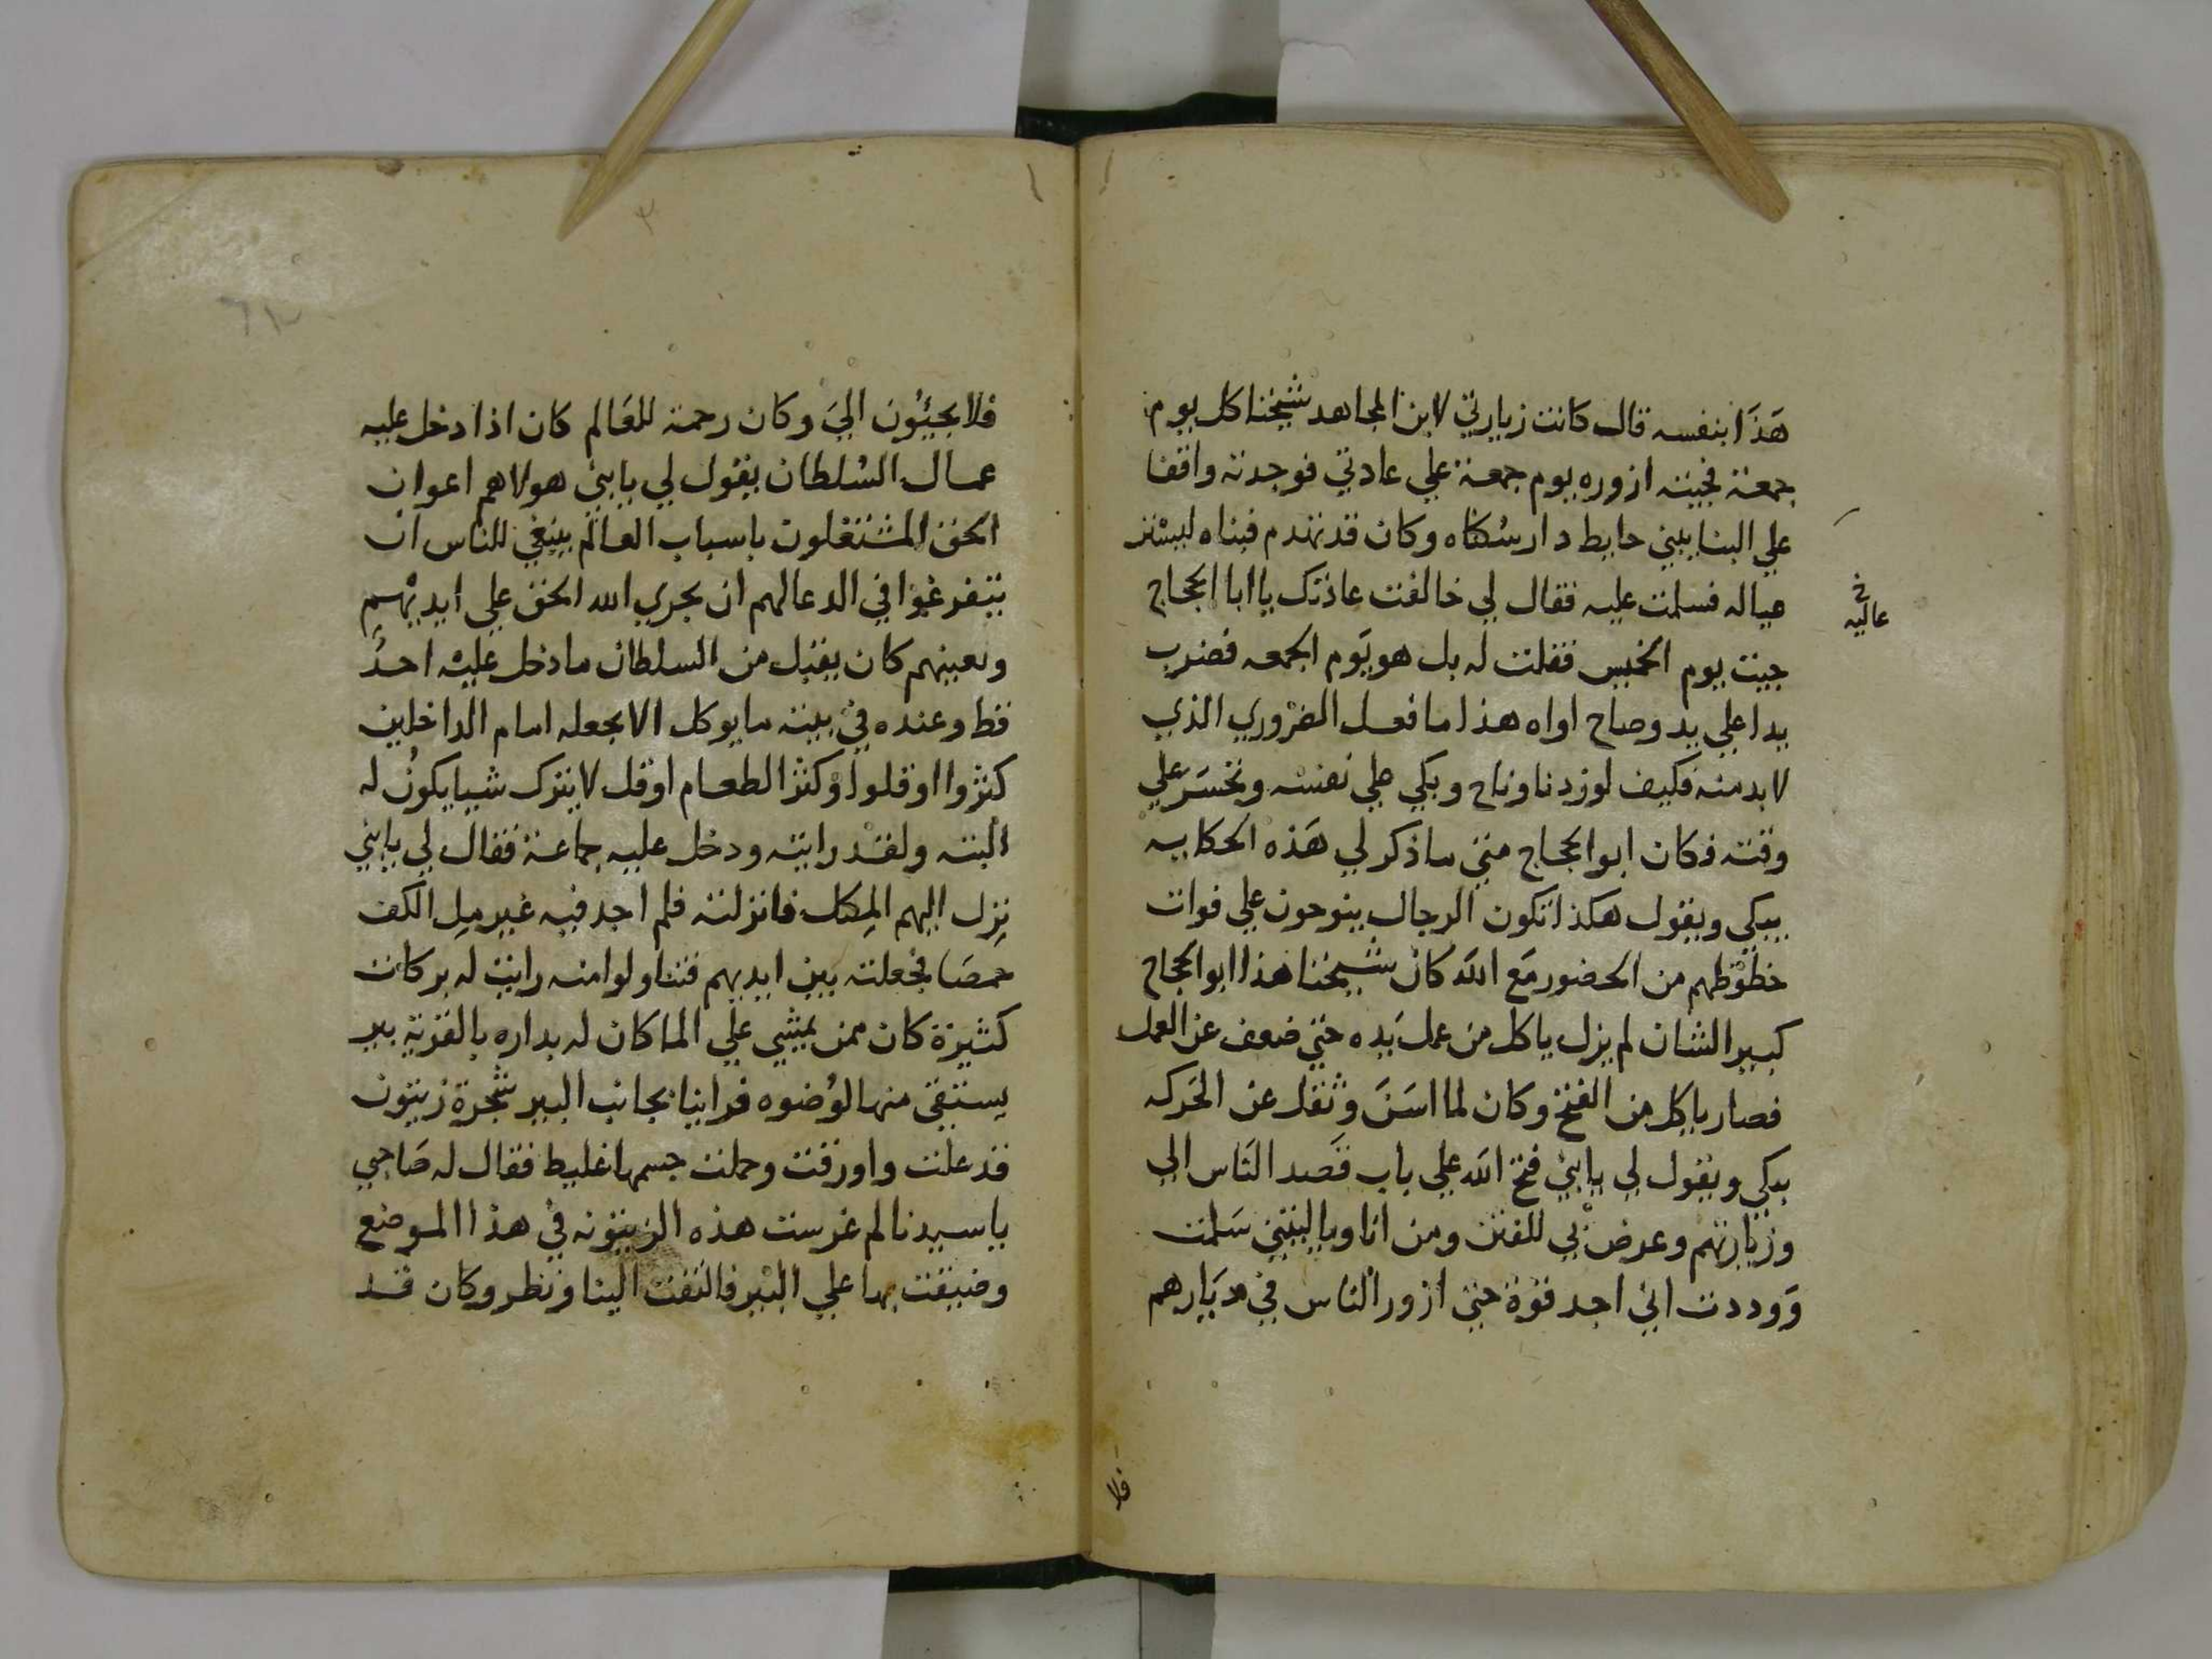 هَذَا بنفسه قال كانت زيارتي لابن المجاهد شيخنا كل يوم
جمعة فجيته ازوره يوم جمعة علي عادتي فوجدته واقفا
علي البنا يبني حايط دار سكناه وكان قد تهدم فبناه ليستر
عياله فسلمت عليه فقال لي خالفت عادتك يا ابا الحجاج
خ
عاليه
جيت يوم الخميس فقلت له بل هو يَوم الجمعه فضرب
يدا علي يد وصاح اواه هذا ما فعل الضروري الذي
لا بد منه فكيف لو زدنا وناح وبكي علي نفسه وتحسَّر علي
وقته فكان ابو الحجاج متي ما ذكر لي هَذه الحكايه
يبكي ويقول هكذا تكون الرجال ينوحون علي فوات
حظوظهم من الحضور مَع الله كان شيخنا هذا ابو الحجاج
كبير الشان لم يزل ياكل من عمل يَده حتي ضعف عن العمل
فصار ياكل من الفتح وكان لما اسَنَ وثقل عن الحَركه
يبكي ويقول لي يابني فتح الله علي باب قصَد الناس الي
وزيارتهم وعرضني للفتن ومن انا وياليتني سَلمت
وَوددت اني اجد قوة حتي ازور الناس في ديَارهم
فلا
٣
فلا يجيئُون اليَ وكان رحمة للعَالم كان اذا دخل عليه
عمال السُلطان يقول لي يابني هولاهم اعوان
الحق المشتغلون باسباب العالم ينبغي للناس ان
يتفرغوا في الدعا لهم ان يجري الله الحق علي ايديهم
ويعينهم كان يقبل من السلطان ما دخل عليه احدُ
قط وعنده في بيته ما يوكل الا يجعله امام الداخلين
كثروا او قلوا وكثر الطعام او قل لا يترك شيا يكونُ له
البته ولقد رايته ودخل عليه جماعة فقال لي يابني
نزل اليهم المِكل فانزلته فلم اجد فيه غير مِل الكف
حمصَا فجعلته بين ايديهم فتناولوا منه رايت له بركات
كثيرة كان ممن يمشي علي الما كان له بداره بالقرية بير
يستقي منها لوُضوه فراينا بجانب البير شجرة زيتون
قد علت واورقت وحملت جسمها غليط فقال له صَاحبي
يا سيدنا لم غرست هذه الزيتونه في هذا الموضع
وضيقت بها علي البير فالتفت الينا ونظر وكان قد